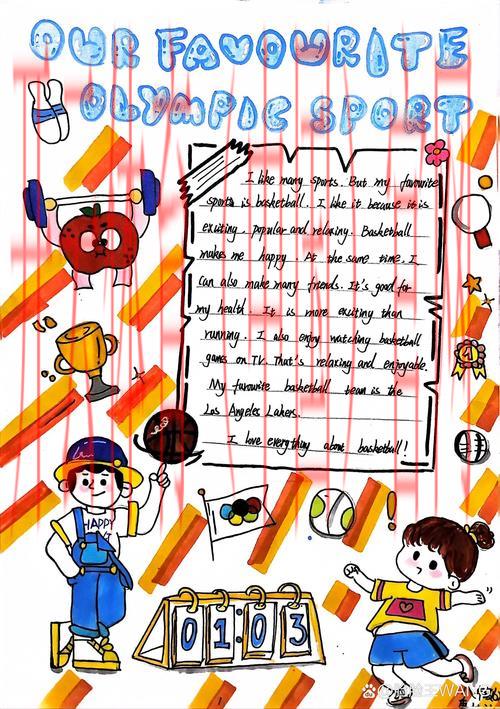 OUR FAVOURITE
OLYMPIC SPORT
I like many sports. But my favourite
sports is basketball. I like it because it is
exciting, popular and relaxing. Basketball
makes me happy. At the same time, I
can also make many friends. It's good for
my health. It is more exciting than
running. I also enjoy watching basketball
games on TV. That's relaxing and enjoyable.
My favourite basketball team is the
Los Angeles Lakers.
I love everything about basketball!
1
HAPPY
01:03